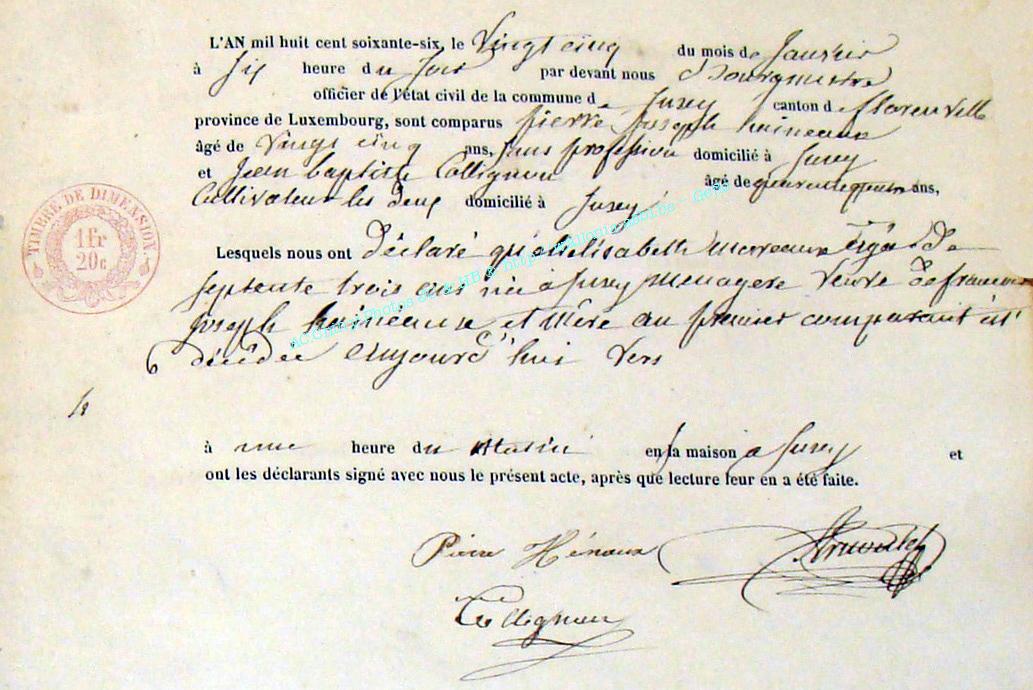 L'AN mil huit cent soixante-six, le Vingt cinq du mois de Janvier
à Six heure du Soir par devant nous Bourgmestre
officier de l'état civil de la commune de Jusey canton de florenville
province de Luxembourg, sont comparus pierre Joseph haineaux
âgé de Vingt cinq ans, sans profession domicilié à Jusey
et Jean baptiste Collignon âgé de quarente quatre ans,
Cultivateur les deux domicilié à Jusey
TIMBRE DE DIMENSION.
1 fr
20 c
Lesquels nous ont déclaré que elisabeth moreaux agée de
septente trois ans née à Jusey menagere veuve de francois
joseph haineause et mère au premier comparant est
décédée aujourd'hui vers
à une heure du Matin en sa maison a Jusey et
ont les déclarants signé avec nous le présent acte, après que lecture leur en a été faite.
Pierre Hénaux
Collignon